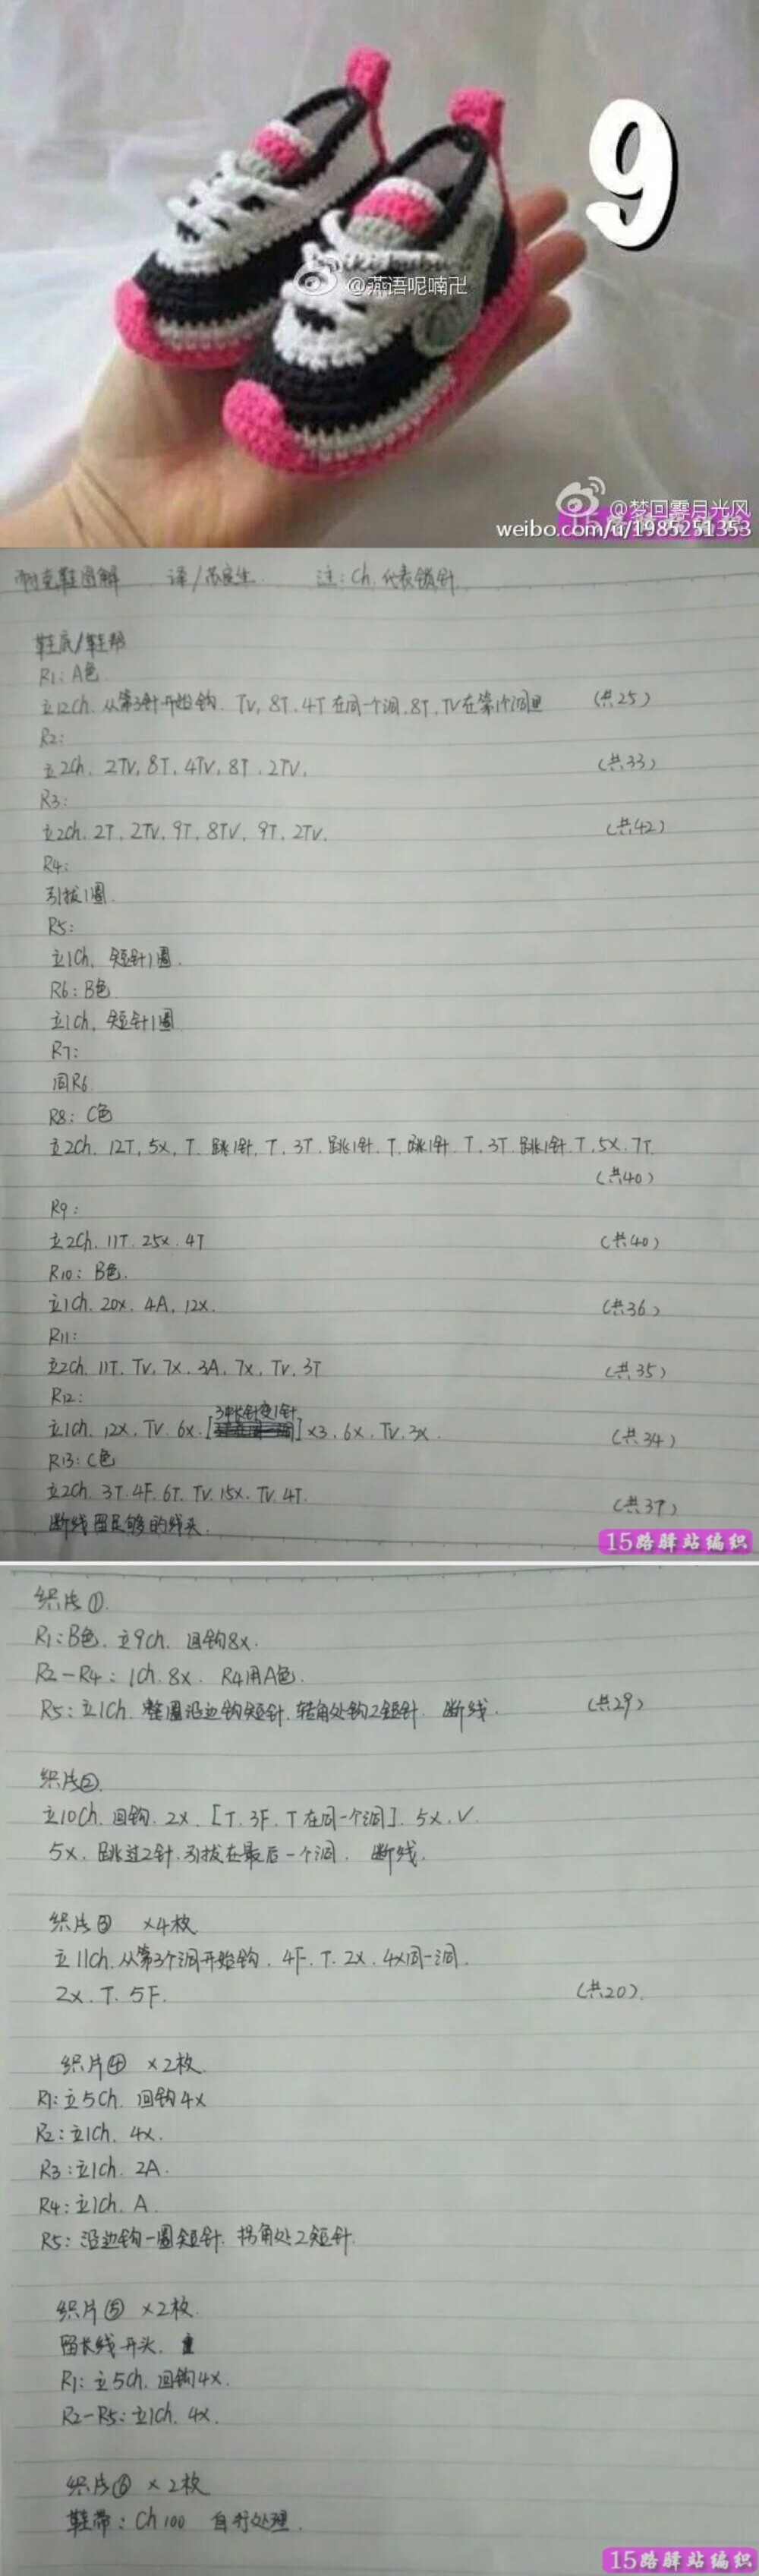 9
@燕语呢喃卍
@梦回霁月光风
weibo.com/u/1985251353
耐克鞋图解 译/苏 生. 注:Ch.代表锁针
鞋底/鞋帮
R1:A色
立12ch.从第3针开始钩. TV, 8T. 4T在同一个洞. 8T, TV在第1个洞里 (共25)
R2:
立2ch. 2TV, 8T, 4TV, 8T. 2TV. (共33)
R3:
立2ch. 2T. 2TV. 9T. 8TV, 9T. 2TV. (共42)
R4:
引拔1圈.
R5:
立1ch, 短针1圈.
R6:B色
立1ch, 短针1圈
R7:
同R6
R8:C色
立2ch. 12T, 5x, T. 跳1针, T. 3T. 跳1针. T. 跳1针. T. 3T. 跳1针. T. 5x. 7T.
(共40)
R9:
立2ch. 11T. 25x. 4T (共40)
R10:B色.
立1ch. 20x. 4A. 12x. (共36)
R11:
立2ch. 11T. TV. 7x. 3A. 7x. TV. 3T (共35)
R12:
3中长针变1针
立1ch. 12x. TV. 6x. [ ]x3. 6x. TV. 3x. (共34)
R13:C色
立2ch. 3T. 4F. 6T. TV. 15x. TV. 4T. (共37)
断线留足够的线头.
15路驿站编织
织片①.
R1:B色. 立9ch. 回钩8x.
R2-R4: 1ch. 8x. R4用A色.
R5:立1ch. 整圈沿边钩短针. 转角处钩2短针. 断线. (共29)
织片②.
立10ch. 回钩. 2x. [T. 3F. T在同一个洞]. 5x. V.
5x. 跳过2针.引拔在最后一个洞. 断线.
织片③ x4枚
立11ch.从第3个洞开始钩. 4F. T. 2x. 4x同一洞.
2x. T. 5F. (共20).
织片④ x2枚.
R1:立5ch. 回钩4x
R2:立1ch. 4x.
R3:立1ch. 2A.
R4:立1ch. A.
R5:沿边钩一圈短针. 拐角处2短针.
织片⑤ x2枚.
留长线开头.
R1:立5ch. 回钩4x.
R2-R5:立1ch. 4x.
织片⑥ x2枚
鞋带:Ch100 自行处理.
15路驿站编织